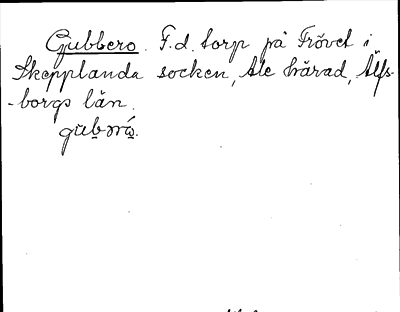 Gubbero. F.d. torp på Frövet i
Skepplanda socken, Ale härad, Älfs-
-borgs län.